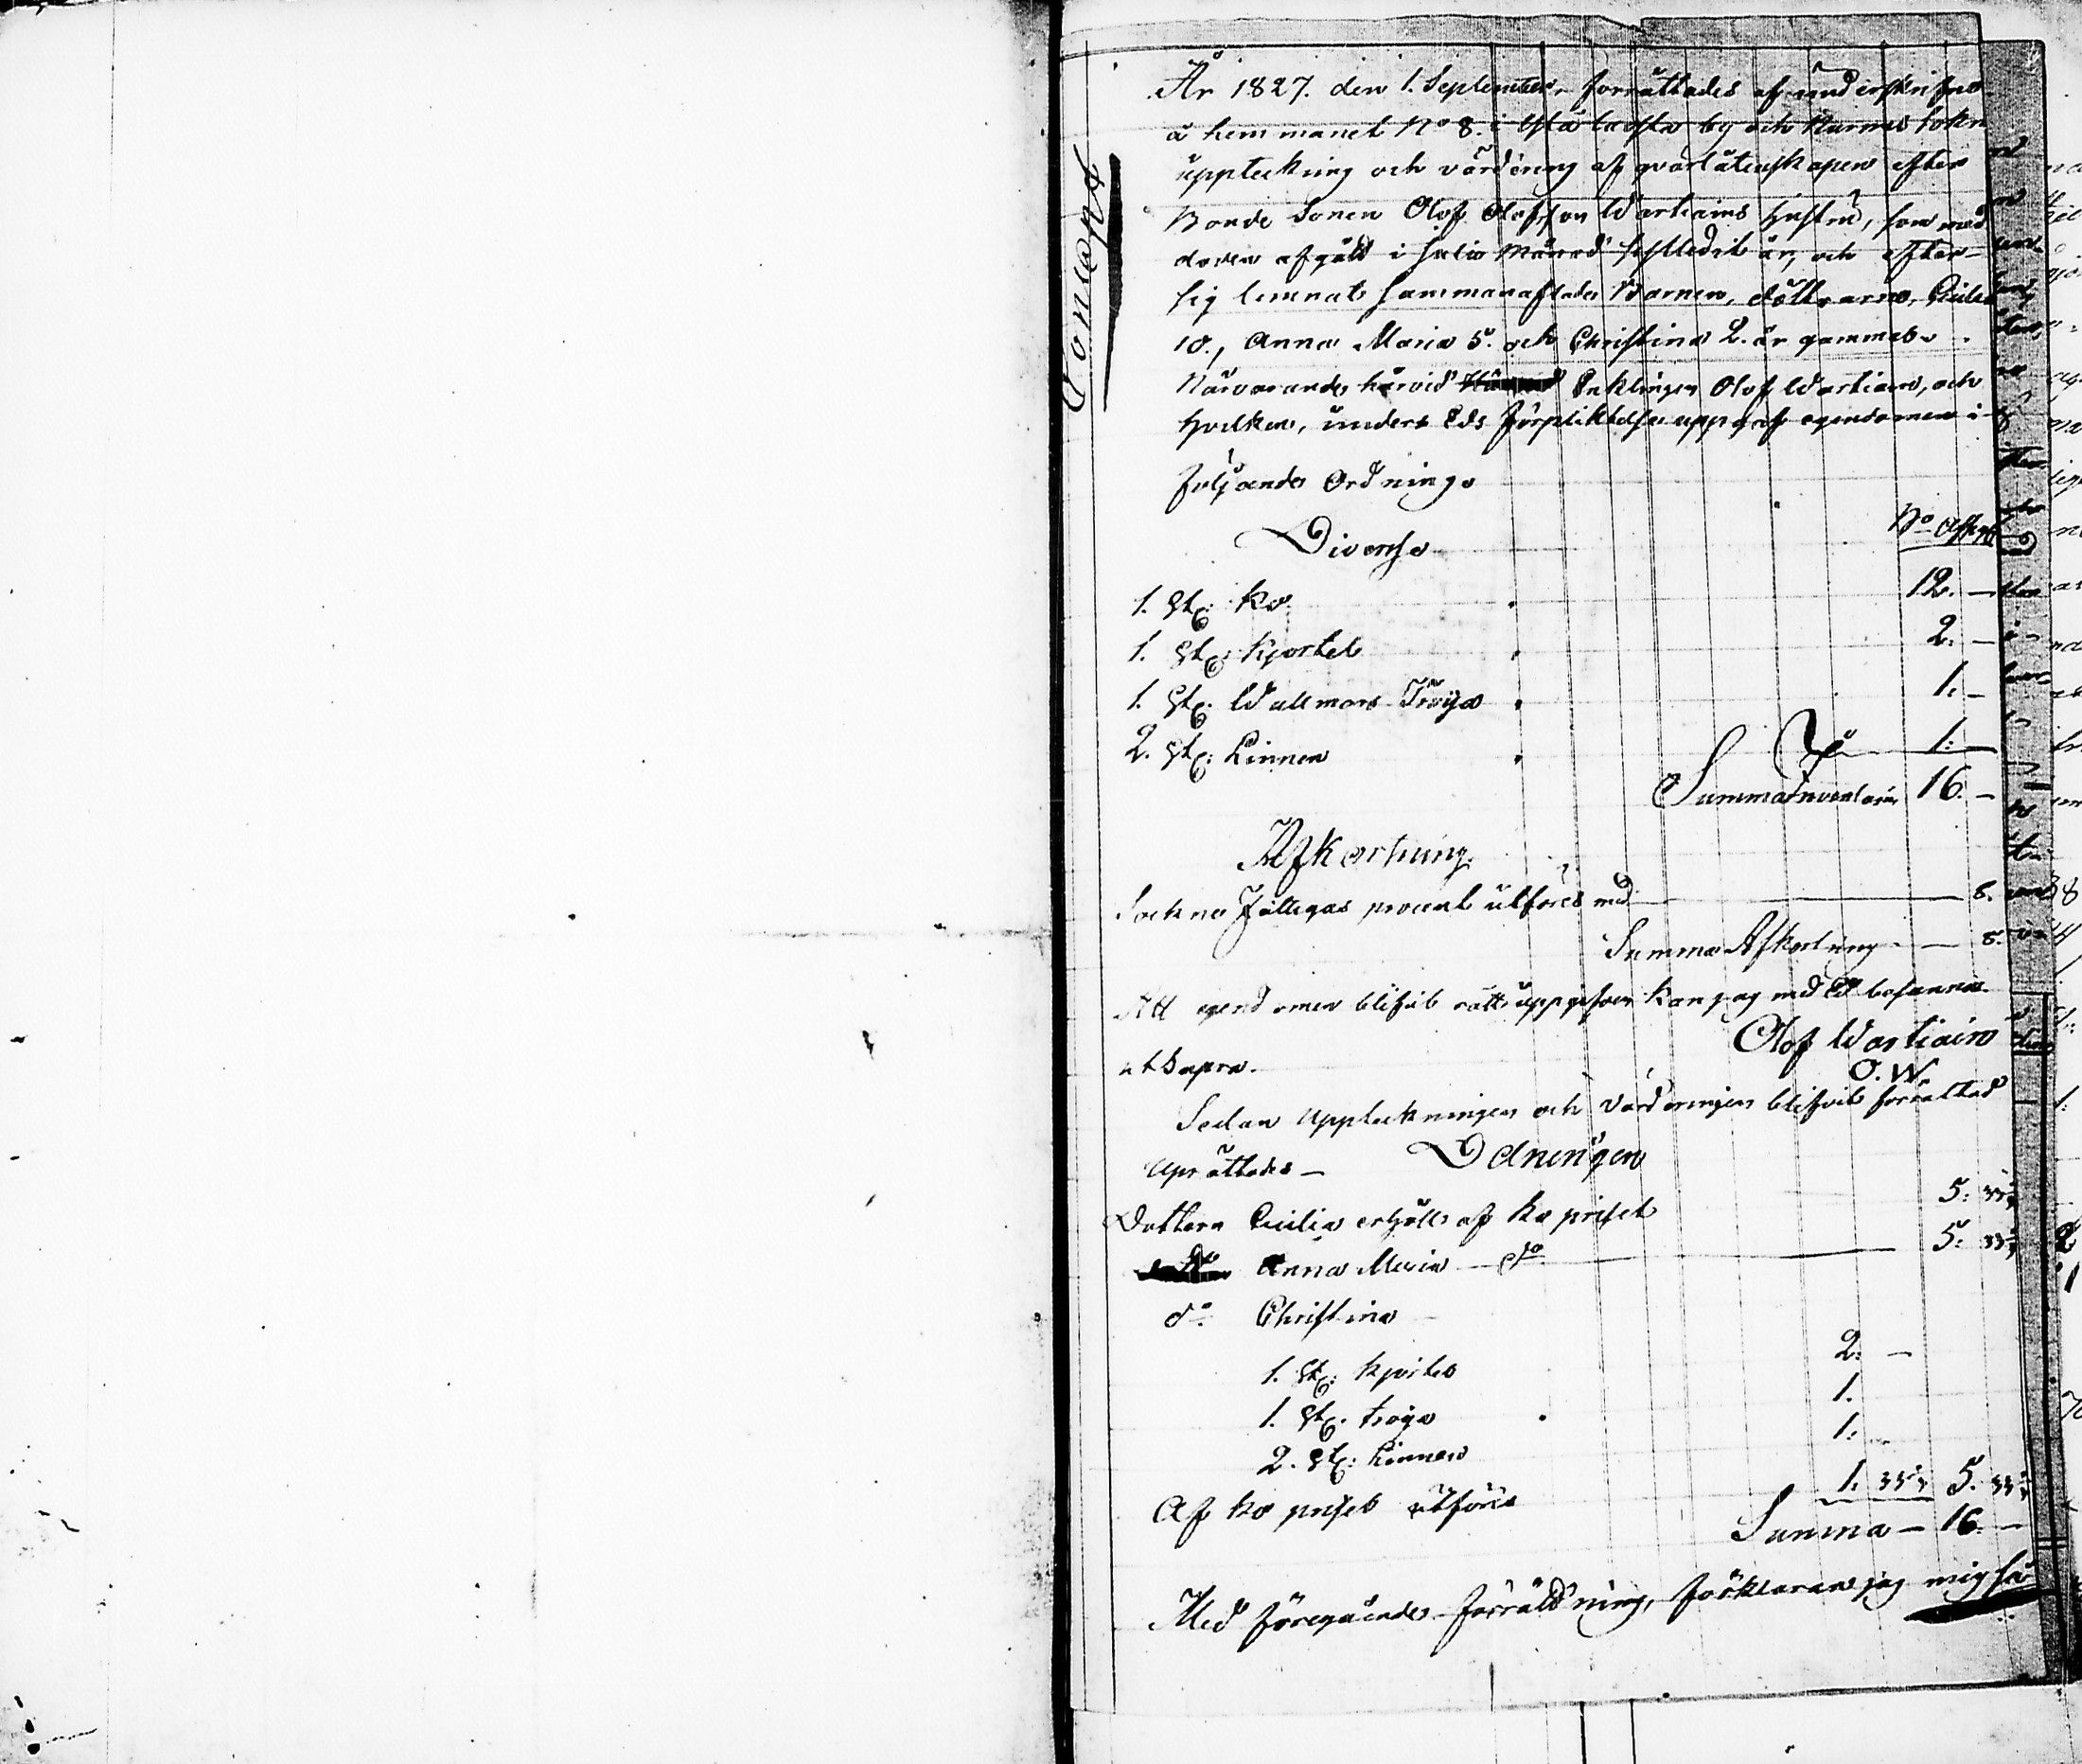 Concept
År 1827. den 1. September, förrättades af underskrifne
å hemmanet No 8. i by och Nurmes Sokn
uppteckning och värdering af qvarlåtenskapen efter
Bonde Sonen Olof Olofsson Wartiains hustru, som med
döden afgått i Julii Månad sistledit år, och efter
sig lemnat sammanaflade Barnen, döttrarne, Cicilia
10., Anna Maria 5. och Christina 2. år gammal.
Närvarande härvid Enklingen Olof Wartiain, och
hvilken, under Eds förpliktelse uppgaf egendomen i
följande Ordning.
Diverse
1. St: Ko 12. —
1. St: Kjortel 2. —
1. St: Wallmars Tröya 1. —
2. St: Linnen 1: —
Summa Inventarii 16. —
Afkortning
Sockne Fattigas procent utföres med 8.
Summa Afkortning — 8.
Att egendomen blifvit rätt uppgifven kan jag med Ed besanna
ut Supra.
Olof Wartiain
O. W.
Sedan Uppteckningen och värderingen blifvit förrättad
Uprättades —
Delningen
Dottern Cicilia erhöll af Ko priset 5: 33⅓
Anna Maria do 5: 33⅓
do Christina
1. St: Kjortel 2: —
1. St: tröya 1.
2. St: Linnen 1:
Af Ko priset utföres 1. 33⅓ 5. 33⅓
Summa — 16. —
Med föregående förrättning, förklarar jag mig så